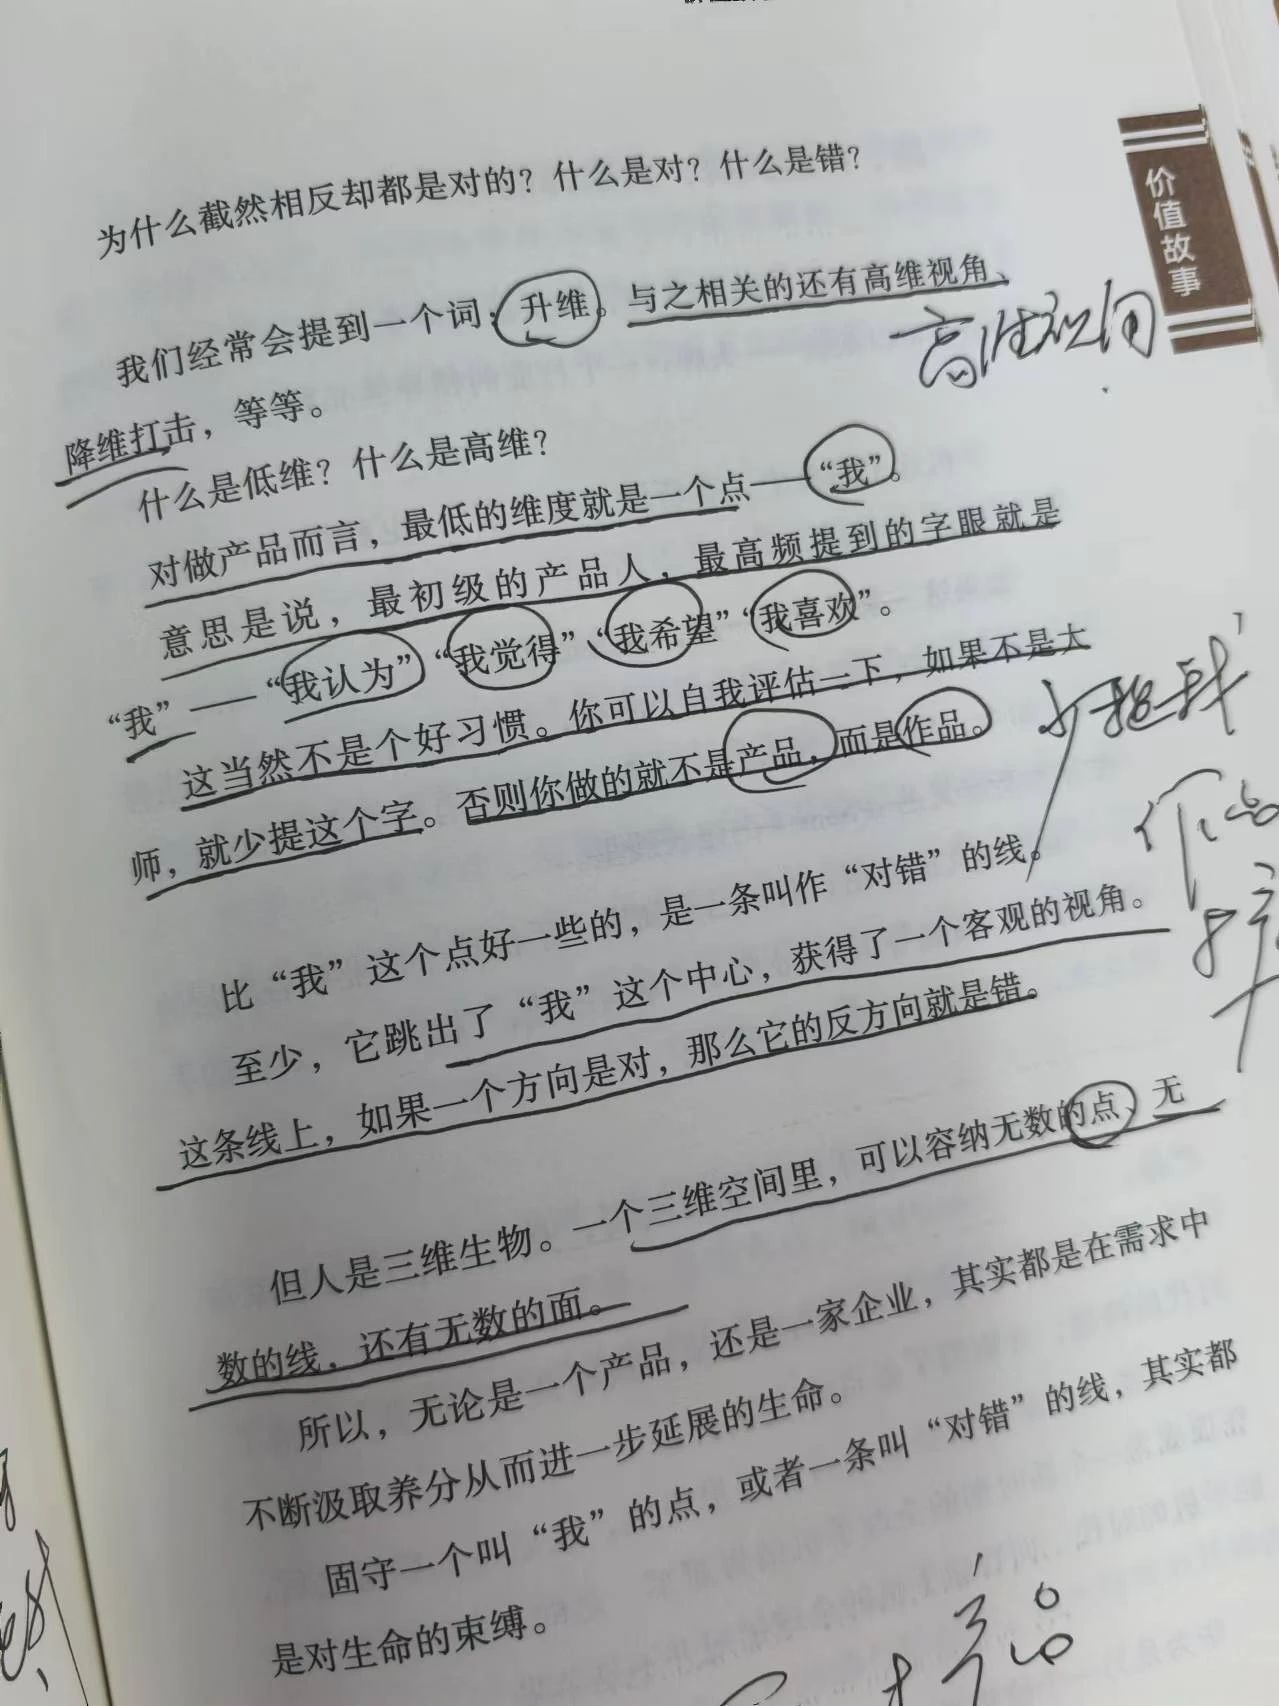 为什么截然相反却都是对的？什么是对？什么是错？
价值故事
我们经常会提到一个词，升维。与之相关的还有高维视角、
降维打击，等等。
什么是低维？什么是高维？
对做产品而言，最低的维度就是一个点——“我”。
意思是说，最初级的产品人，最高频提到的字眼就是
“我”——“我认为”“我觉得”“我希望”“我喜欢”。
这当然不是个好习惯。你可以自我评估一下，如果不是大
师，就少提这个字。否则你做的就不是产品，而是作品。
少提我
作品
比“我”这个点好一些的，是一条叫作“对错”的线。
至少，它跳出了“我”这个中心，获得了一个客观的视角。
这条线上，如果一个方向是对，那么它的反方向就是错。
但人是三维生物。一个三维空间里，可以容纳无数的点、无
数的线，还有无数的面。
所以，无论是一个产品，还是一家企业，其实都是在需求中
不断汲取养分从而进一步延展的生命。
固守一个叫“我”的点，或者一条叫“对错”的线，其实都
是对生命的束缚。